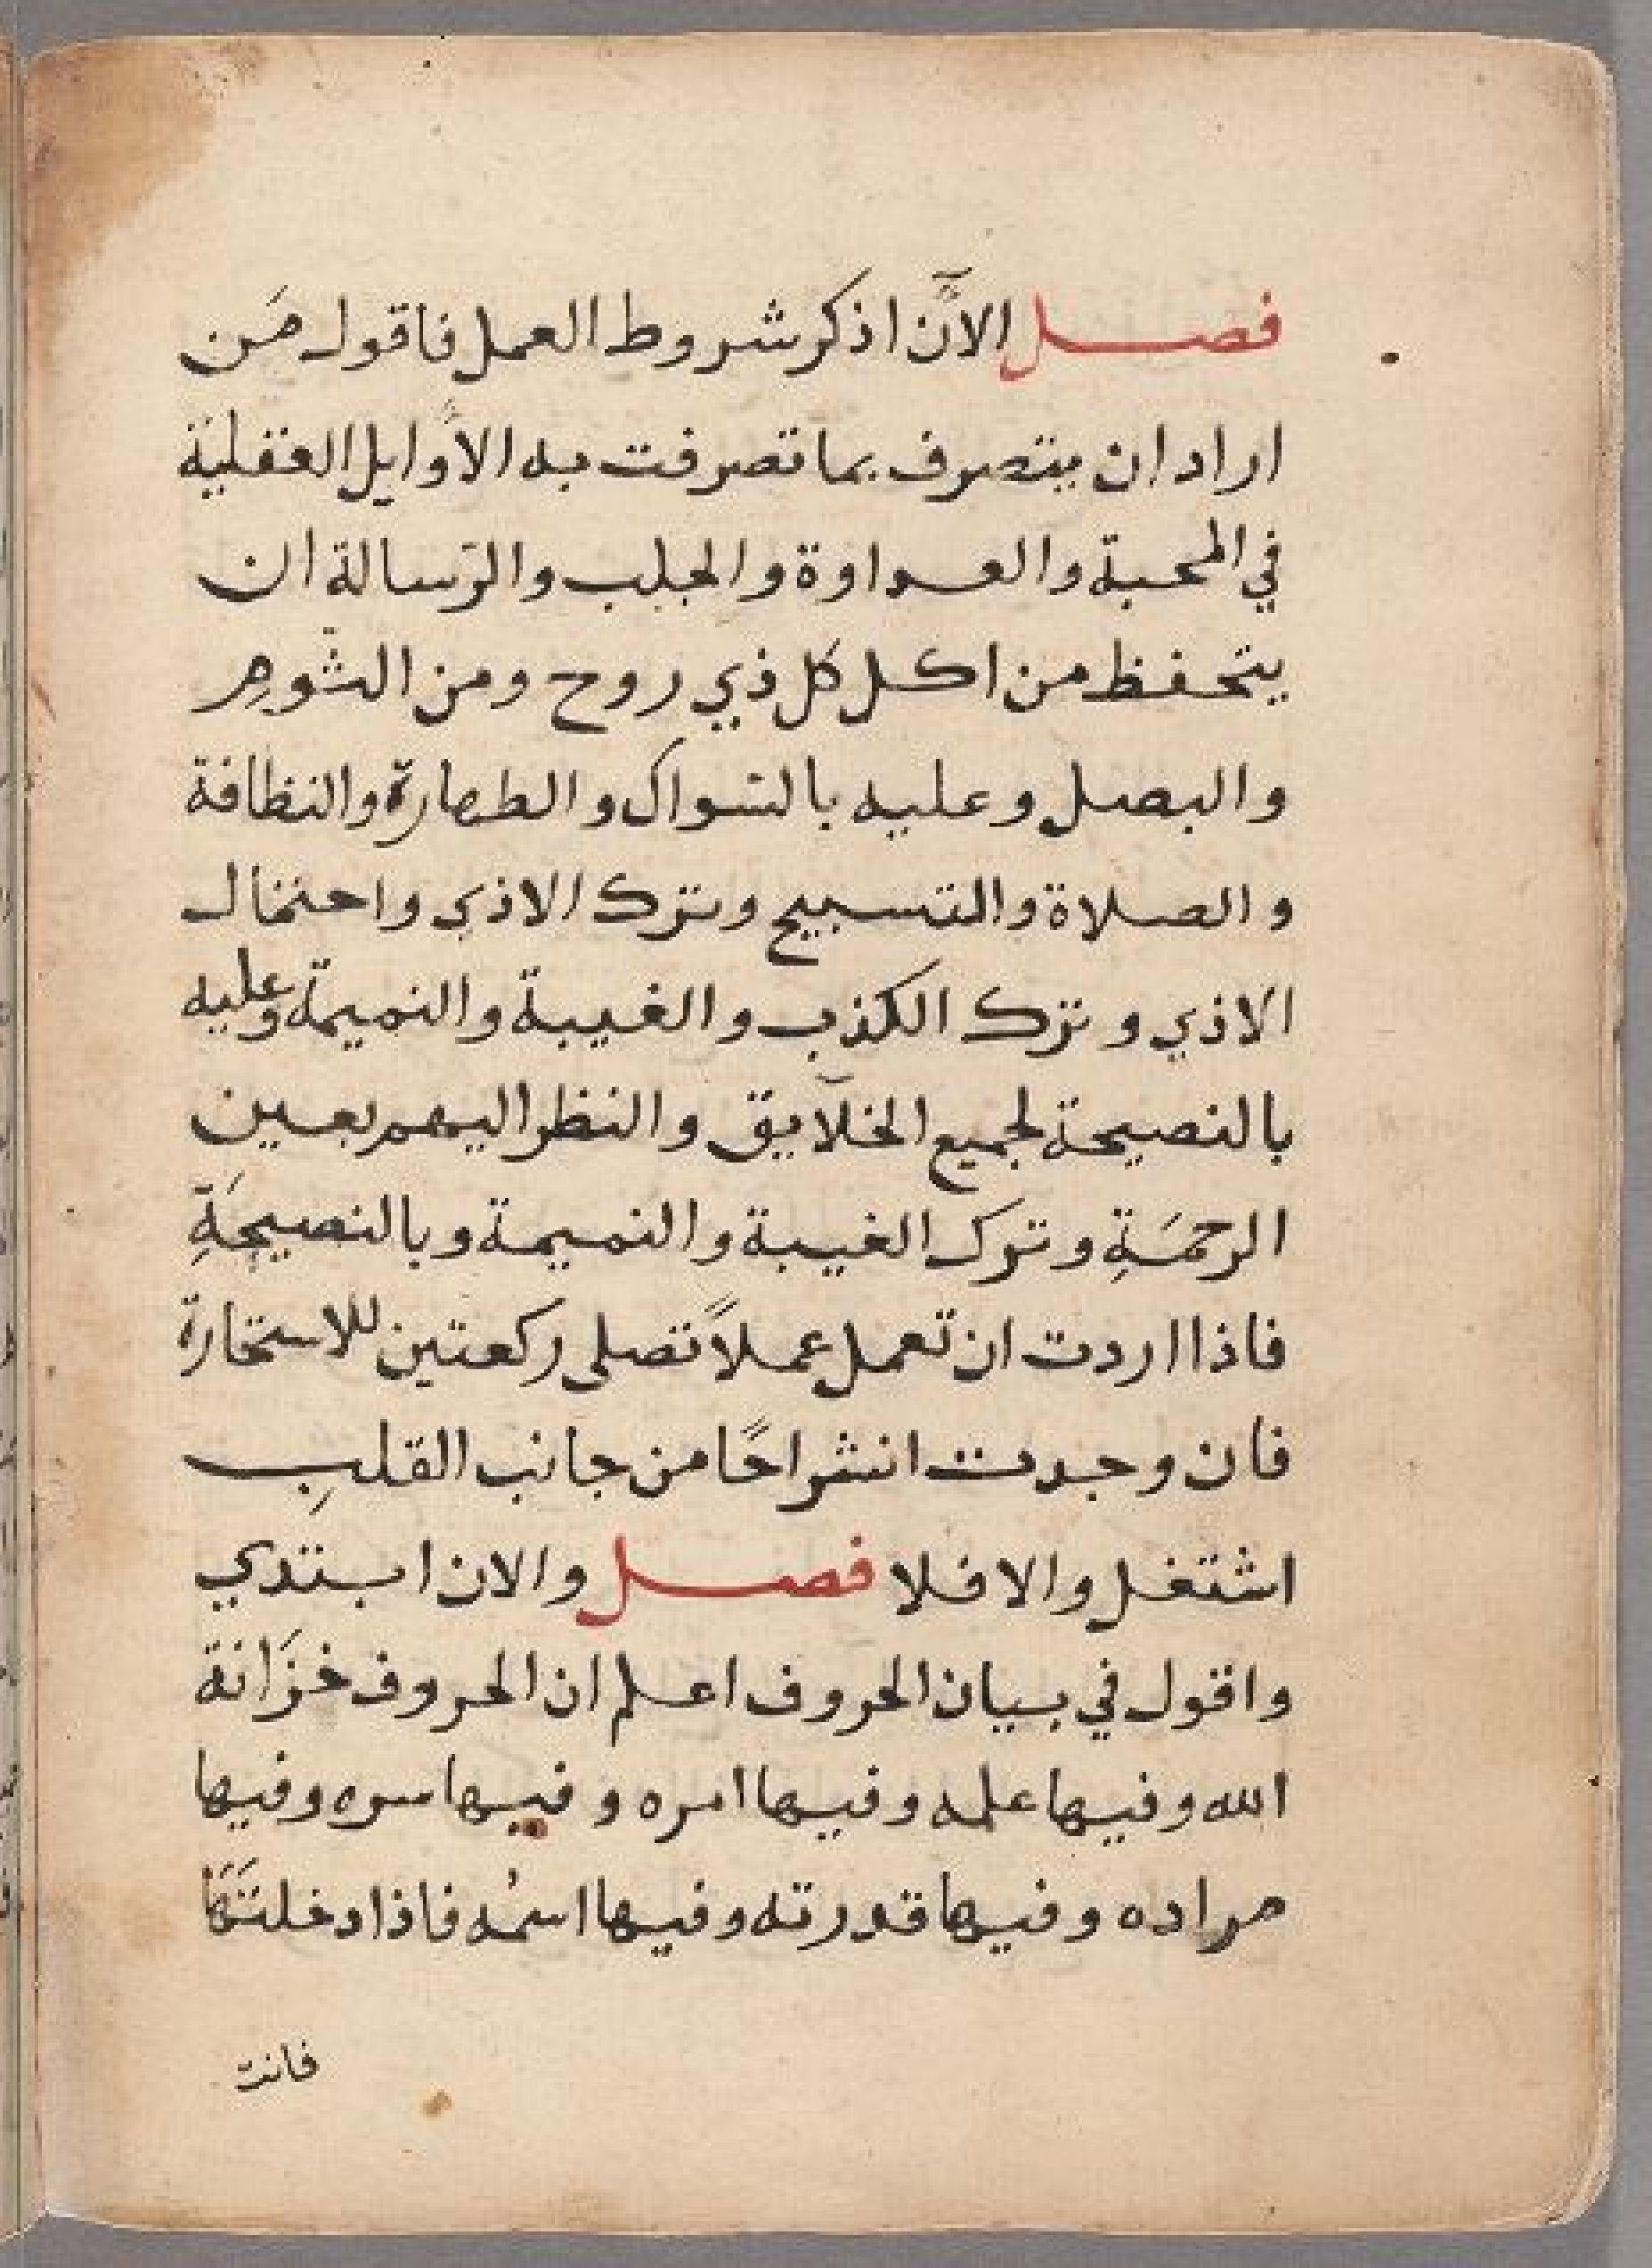 فصل الآن اذكر شروط العمل فاقول من
اراد ان يتصرف بما تصرفت به الأوايل العقلية
في المحبة والعداوة والجلب والرسالة ان
يتحفظ من اكل كل ذي روح ومن الثوم
والبصل وعليه بالسواك والطهارة والنظافة
والصلاة والتسبيح وترك الاذي واحتمال
الاذي وترك الكذب والغيبة والنميمة وعليه
بالنصيحة لجميع الخلآيق والنظر اليهم بعين
الرحمَةِ وترك الغيبة والنميمة وبالنصيحَةِ
فاذا اردت ان تعمل عملاً تصلى ركعتين للاستخارة
فان وجدت انشراحًا من جانب القلبِ
اشتغل والا فلا فصل والان ابتدي
واقول في بيان الحروف اعلم ان الحروف خزَانة
الله وفيها علمه وفيها امره وفيها سره وفيها
مراده وفيها قدرته وفيها اسمُه فاذا دخلتَهَا
فانت